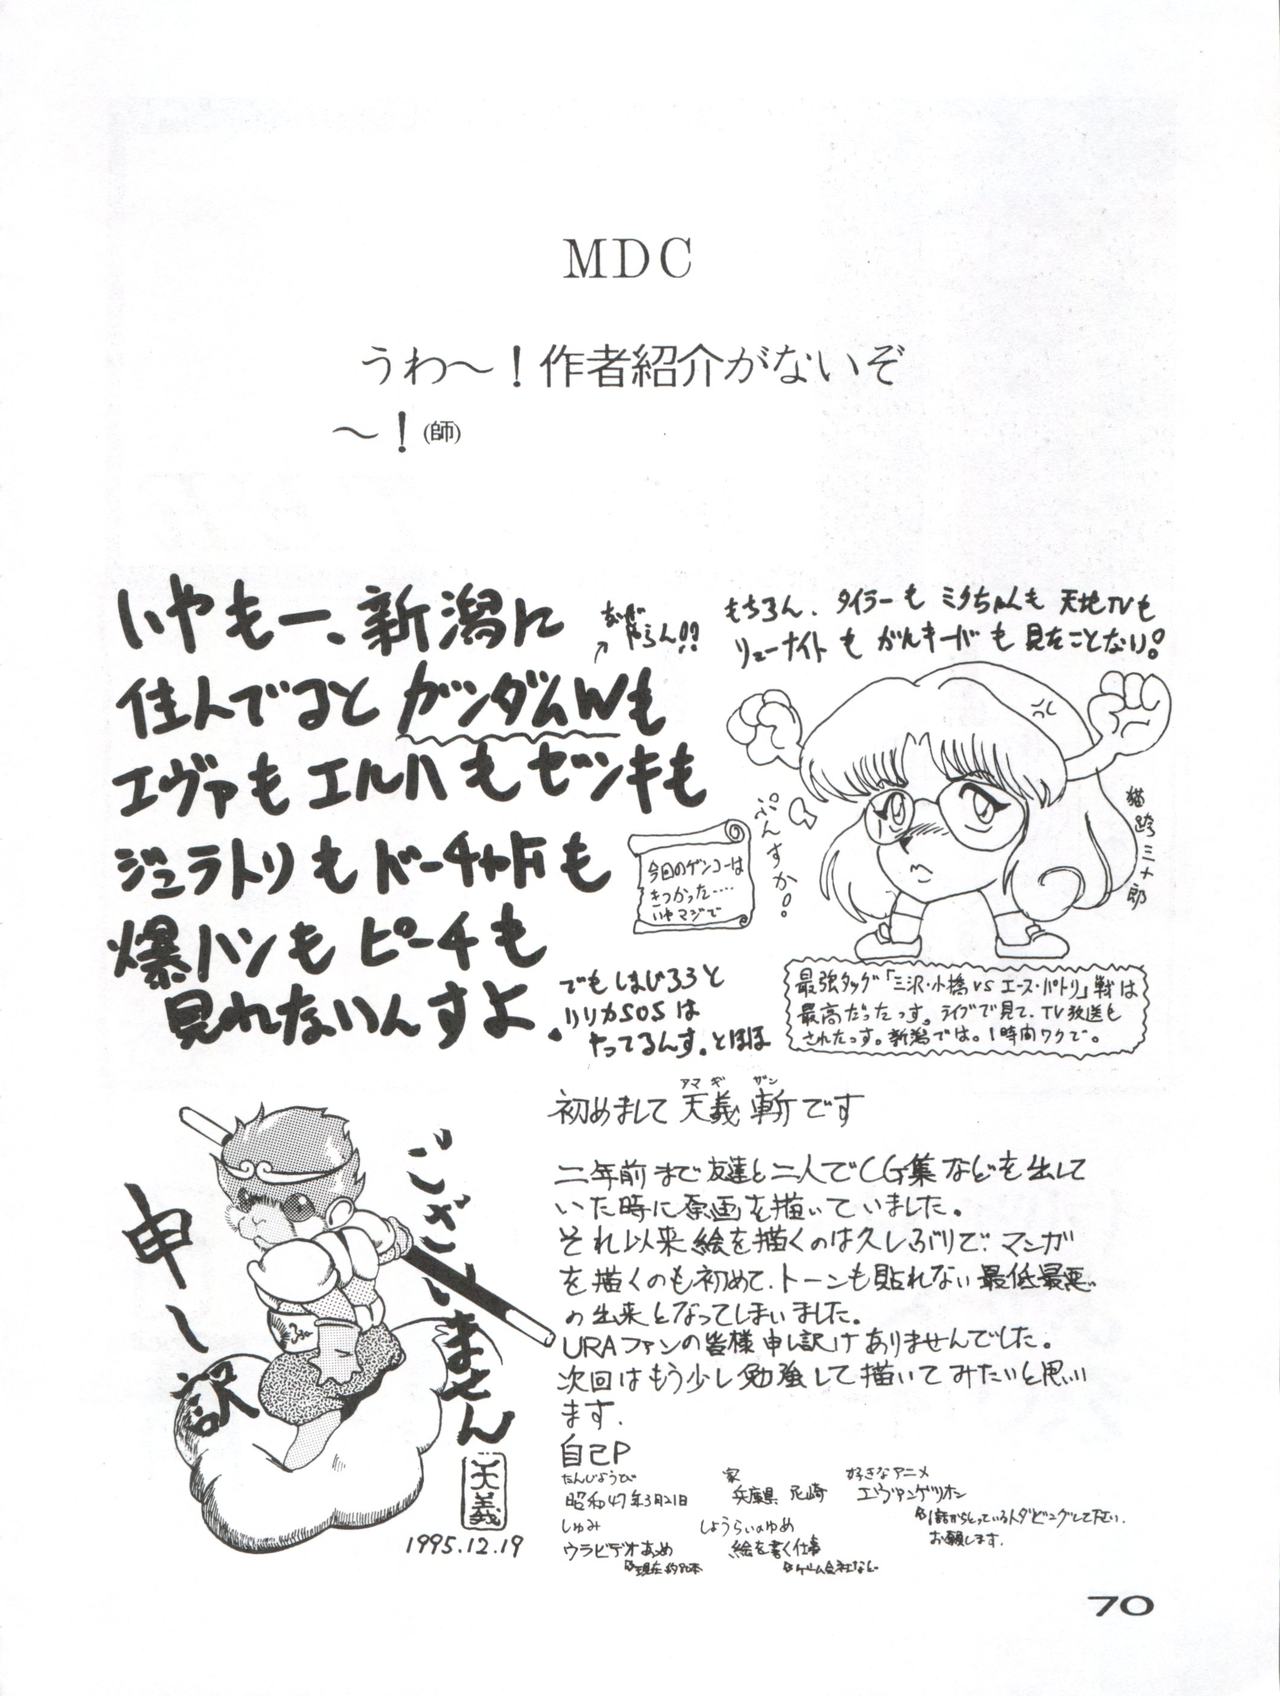 MDC
うわ～！作者紹介がないぞ
～！(師)
いやもー、新潟に
住んでるとガンダムWも
エヴァもエルハもゼンキも
ジュラトリもドーチャも
爆ハンもピーチも
見れないんすよ.
もちろん、タイラーもミタちゃんも天地TVも
リューナイトもがんキードも見たことない!
ぷんすか!
猫跨三十郎
今回のゲンコーは
きつかった……
いやマジで
でもしましろうと
リリカSOSは
やってるんす。とほほ
最強タッグ「三沢・小橋VSエース・パトリ」戦は
最高だったっす。ライブで見て、TV放送も
されたっす。新潟では。1時間ワクで。
申し訳
ございません
天義
1995.12.19
アマギ ザン
初めまして天義斬です
二年前まで友達と二人でCG集などを出して
いた時に原画を描いていました。
それ以来絵を描くのは久しぶりで、マンガ
を描くのも初めて、トーンも貼れない最低最悪
の出来となってしまいました。
URAファンの皆様申し訳けありませんでした。
次回はもう少し勉強して描いてみたいと思い
ます.
自己P
たんじょうび
昭和47年3月21日
家
兵庫県 尼崎
好きなアニメ
エヴァンゲリオン
1話からとっている人ダビングして下さい.
お願します.
しゅみ
ウラビデオあつめ
しょうらいのゆめ
絵を書く仕事
ゲーム会社など
70